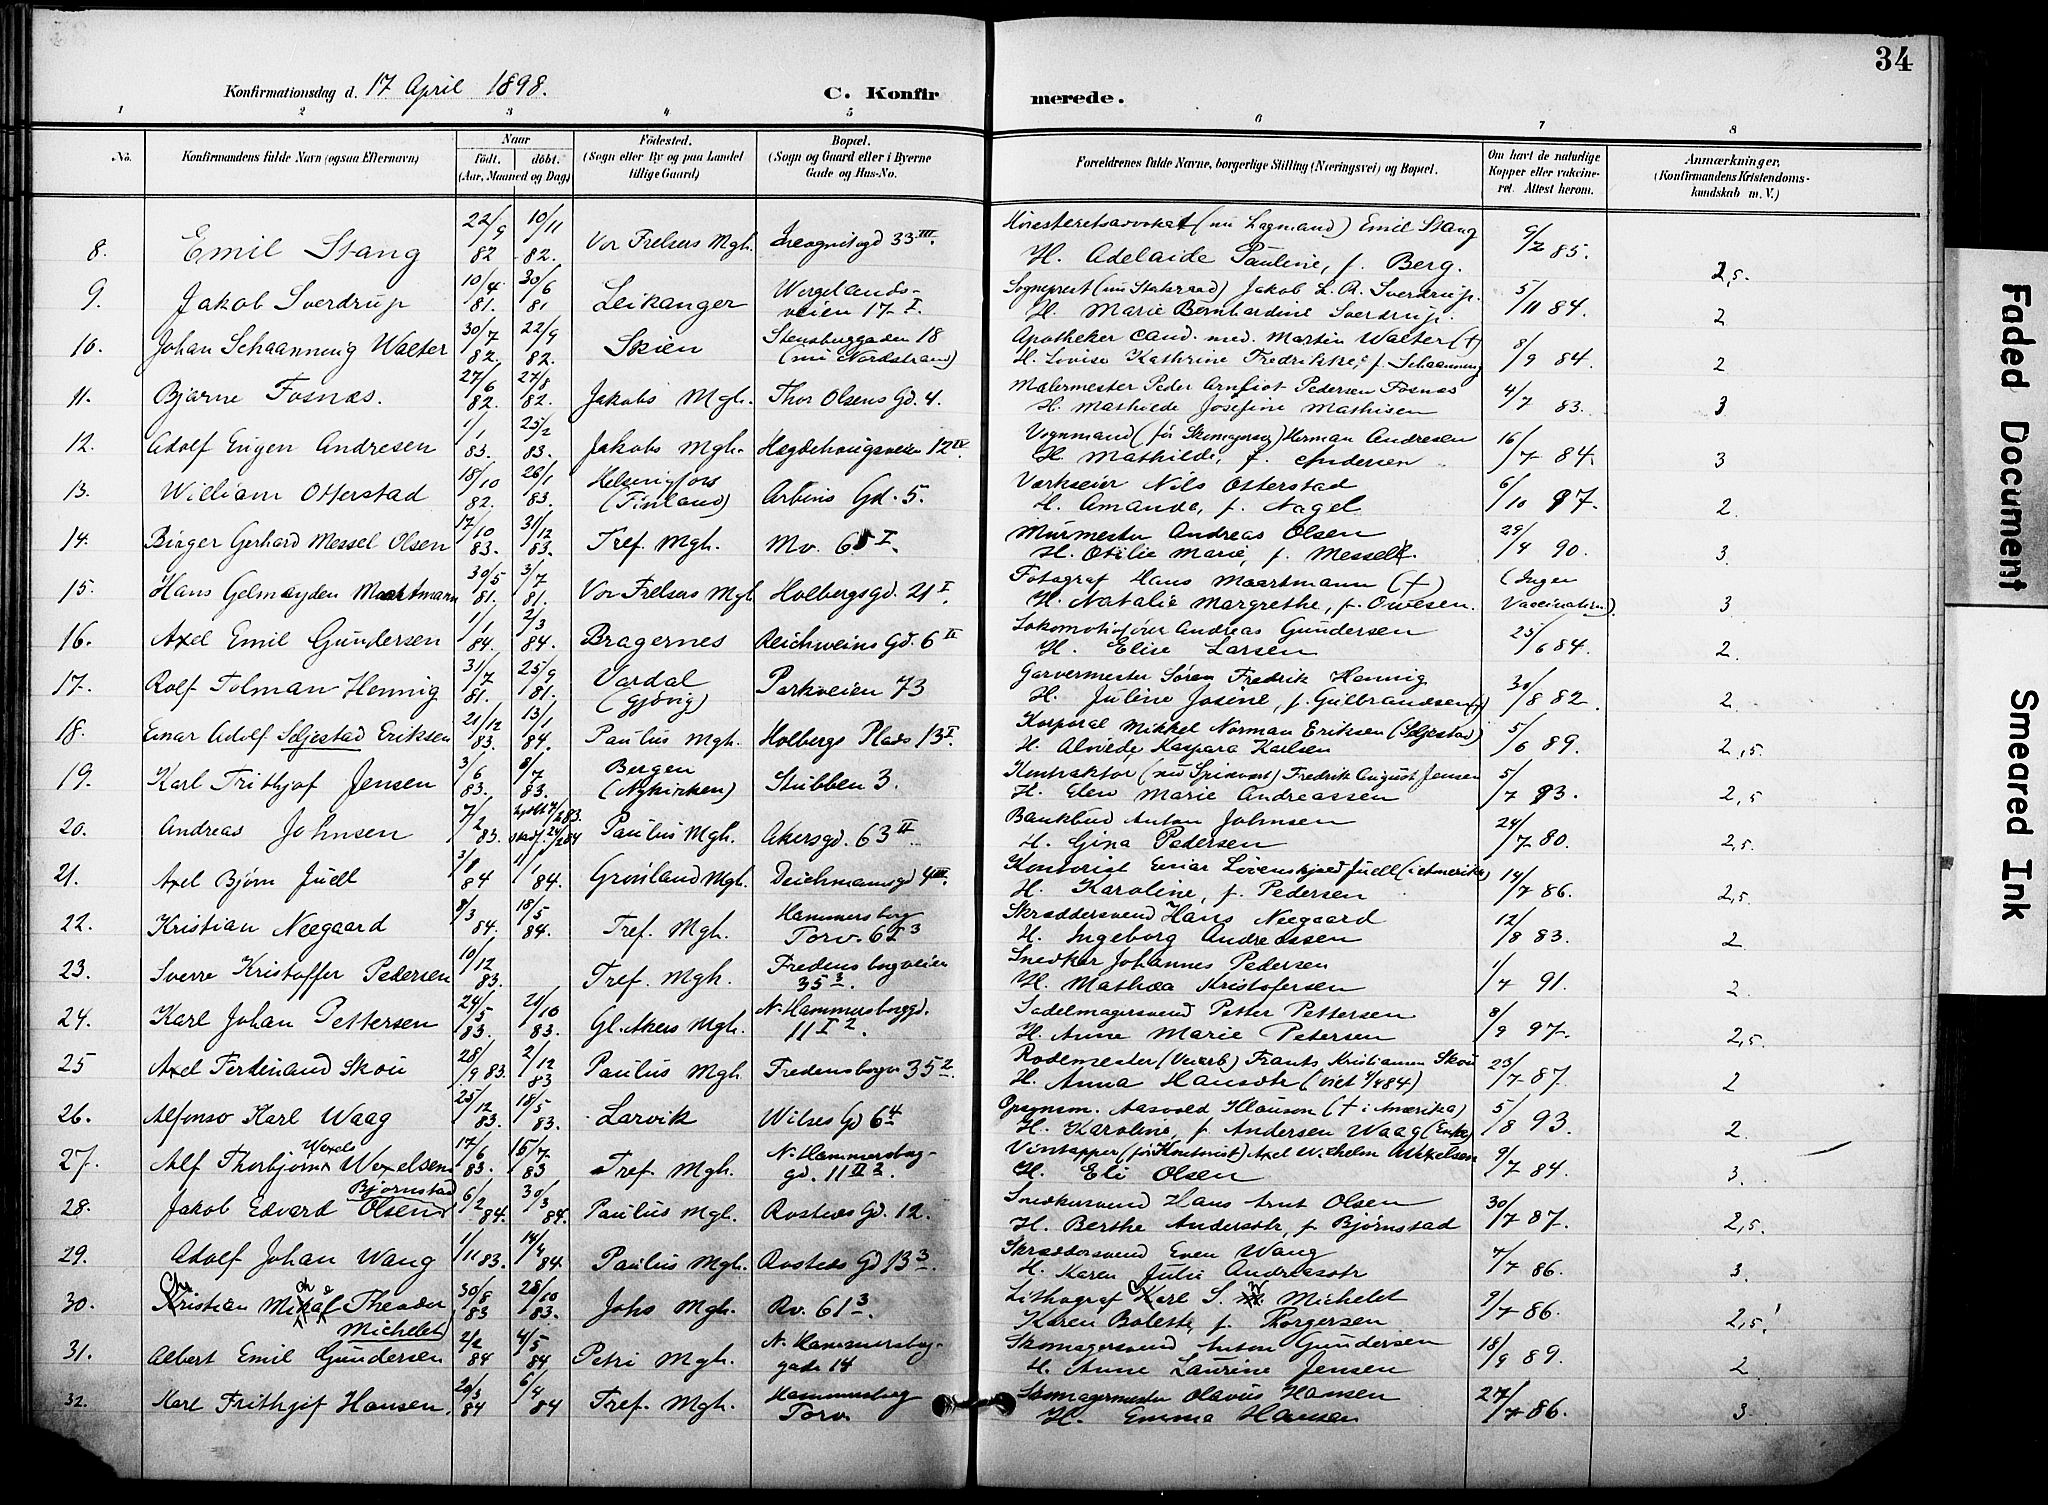 34
Konfirmationsdag d. 17 April 1898.
C. Konfirmerede.
1 2 3 4 5 6 7 8
No.
Konfirmandens fulde Navn (ogsaa Efternavn)
Naar
födt. döbt.
(Aar, Maaned og Dag)
Födested.
(Sogn eller By og paa Landet
tillige Gaard)
Bopæl.
(Sogn og Gaard eller i Byerne
Gade og Hus-No.
Forældrenes fulde Navne, borgerlige Stilling (Næringsvei) og Bopæl.
Om havt de naturlige
Kopper eller vakcine-
ret. Attest herom.
Anmærkninger,
(Konfirmandens Kristendoms-
kundskab m. V.)
8. Emil Stang 22/9 82 10/11 82. Vor Frelsers Mgh. Incognitogd 33 III. Høiesteretsadvokat (nu Lagmand) Emil Stang
H. Adelaide Pauline, f. Berg. 9/2 85. 2,5.
9. Jakob Sverdrup 10/4 81. 30/6 81 Leikanger Wergelands-
veien 17 I. Sogneprest (nu Statsraad) Jakob L. R. Sverdrup.
H. Marie Bernhardine Sverdrup. 5/11 84. 2
10. Johan Schaanning Walter 30/7 82. 22/9 82. Skien Stensbuggaden 18
(nu Nordstrand) Apotheker cand. med. Martin Walter (+)
H. Lovise Kathrine Fredrikke, f. Schaanning 8/9 84. 2
11. Bjarne Fosnæs. 27/6 82. 27/8 82. Jakobs Mgh. Thor Olsens Gd. 4. Malermester Peder Arnfiot Pedersen Fosnæs
H. Mathilde Josefine Mathisen 4/7 83. 3
12. Adolf Eugen Andresen 1/1 83. 25/2 83. Jakobs Mgh. Hegdehaugsveien 12 IV. Vognmand (før Skomagersv.) Herman Andresen
H. Mathilde, f. Andersen 16/7 84. 3
13. William Otterstad 18/10 82. 26/1 83. Helsingfors
(Finland) Arbins Gd. 5. Værkseier Nils Otterstad
H. Amanda, f. Nagel 6/10 97. 2.
14. Birger Gerhard Messel Olsen 17/10 83. 31/12 83. Tref. Mgh. Mv. 65 I. Murmester Andreas Olsen
H. Otilie Marie, f. Messel. 29/4 90. 3.
15. Hans Gelmeyden Maartmann 30/5 81. 3/7 81. Vor Frelsers Mgh Holbergsgd. 21 I. Fotograf Hans Maartmann (+)
H. Natalie Margrethe, f. Owesen. (Ingen
Vaccination). 3
16. Axel Emil Gundersen 1/1 84. 2/3 84. Bragernes Reichweins Gd. 6 II Lokomotivfører Andreas Gundersen
H. Elise Larsen 25/6 84. 2.
17. Rolf Tolman Hennig 31/7 81. 25/9 81. Vardal
(Gjøvig) Parkveien 73 Garvermester Søren Fredrik Hennig
H. Juline Josine, f. Gulbrandsen(+) 30/8 82. 2.
18. Einar Adolf Seljestad Eriksen 21/12 83. 13/1 84. Paulus Mgh. Holbergs Plads 13 I. Korporal Mikkel Norman Eriksen (Seljestad)
H. Alvilde Kaspara Karlsen 5/6 89. 2,5.
19. Karl Frithjof Jensen 3/6 83. 8/7 83. Bergen
(Nykirken) Stubben 3. Kontraktør (nu Spisevært) Fredrik August Jensen
H. Elen Marie Andreassen 5/7 93. 2,5
20. Andreas Johnsen 7/2 83. 7/2 83. 24/2 84 Paulus Mgh. Akersgd. 63 II Bankbud Anton Johnsen
H. Gina Pedersen 24/7 80. 2,5.
21. Axel Bjørn Juell 3/8 84 1/1 84. Grønland Mgh. Deichmansgd 4 III. Kontorist Einar Løvenskjold Juell (i Amerika)
H. Karoline, f. Pedersen 14/7 86. 2,5.
22. Kristian Neegaard 8/3 84. 18/5 84. Tref. Mgh. Hammersborg
Torv. 6 I 3 Skræddersvend Hans Neegaard
H. Ingeborg Andreassen 12/8 83. 2
23. Sverre Kristoffer Pedersen 10/12 83. Tref. Mgh. Fredensborgveien
35 3. Snedker Johannes Pedersen
H. Mathea Kristofersen 1/7 91. 2.
24. Karl Johan Pettersen 24/5 83. 21/10 83. Gl. Akers Mgh. N. Hammersborggd.
11 I 2. Sadelmagersvend Petter Pettersen
H. Anne Marie Petersen 8/9 97. 2,5.
25 Axel Ferdinand Skou 28/9 83. 2/12 83 Paulus Mgh Fredensborgv 35 2. Rodemester (Ueerb) Frants Kristiansen Skou
H. Anna Hansdtr (viet 4/4 84) 23/7 87. 2
26. Alfonso Karl Waag 25/12 83. 18/5 83. Larvik Wilses Gd 6 4 Opsynsm. Aasvold Klauson (+ i Amerika)
H. Karoline, f. Andersen Waag (Enke) 5/8 93. 2.
27. Alf Thorbjørn Wexelsen Wexels 17/6 83. 15/7 83 Tref. Mgh. N. Hammersborg-
gd. 11 II 2. Vintapper (før Kontorist) Axel Wilhelm Wexelsen
H. Eli Olsen 9/7 84. 3.
28. Jakob Edvard Olsen Bjørnstad 6/2 84. 30/3 84. Paulus Mgh. Rosteds Gd. 12. Snedkersvend Hans Arnt Olsen
H. Berthe Andersdtr, f. Bjørnstad 30/7 87. 2,5.
29. Adolf Johan Wang 1/11 83. 14/4 84. Paulus Mgh. Rosteds Gd 13 3. Skræddersvend Even Wang
H. Karen Julie Andreasdtr 7/7 86. 3.
30. Christian Michael Theodor
Michelet 30/8 83 28/10 83. Johs Mgh. Rv. 61 3 Lithograf Carl S. W. Michelet
Karen Bolette, f. Thorgersen 9/7 86. 2,5.!
31. Albert Emil Gundersen 2/2 84 4/5 84 Petri Mgh. N. Hammersborg-
gade 14 Skomagersvend Anton Gundersen
H. Anne Laurine Jensen 18/9 89. 2
32. Karl Frithjof Hansen. 20/3 84 6/4 84 Tref. Mgh. Hammersborg
Torv. Skomagermester Olavus Hansen
H. Emma Hansen 27/7 86. 3.
Faded Document
Smeared Ink